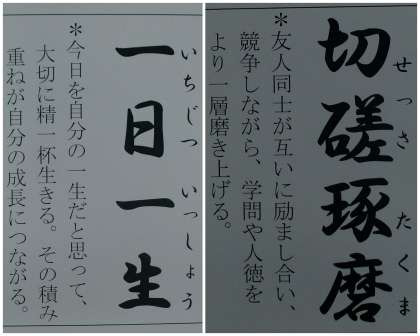 切磋琢磨
せっさたくま
＊友人同士が互いに励まし合い、
競争しながら、学問や人徳を
より一層磨き上げる。
一日一生
いちじつ いっしょう
＊今日を自分の一生だと思って、
大切に精一杯生きる。その積み
重ねが自分の成長につながる。